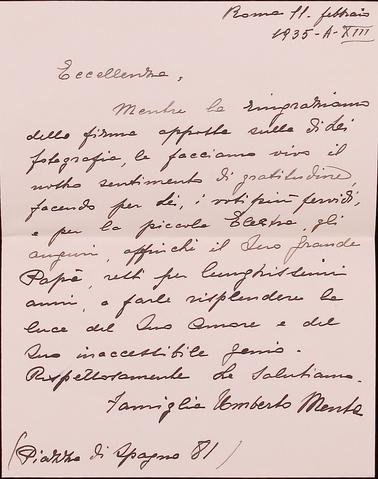 Roma 11. febbraio
1935 - A - XIII
Eccellenza,
Mentre La ringraziamo
della firma apposta sulla di Lei
fotografia, le facciamo vivo il
nostro sentimento di gratitudine,
facendo per Lei, i voti più fervidi,
e per la piccola Elettra, gli
auguri, affinchè il Suo grande
Papà, resti per lunghissimi
anni, a farle risplendere la
luce del Suo Amore e del
Suo inaccessibile genio.
Rispettosamente La salutiamo.
Famiglia Umberto Menta
(Piazza di Spagna 81)